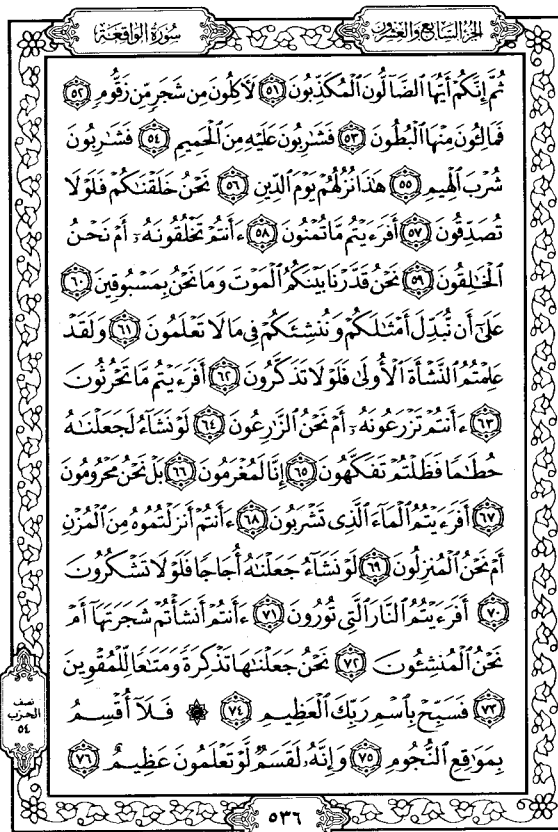 الجزء السابع والعشرون
سورة الواقعة
ثُمَّ إِنَّكُمْ أَيُّهَا ٱلضَّآلُّونَ ٱلْمُكَذِّبُونَ ٥١ لَأَكِلُونَ مِن شَجَرٍ مِّن زَقُّومٍ ٥٢
فَمَالِـُٔونَ مِنْهَا ٱلْبُطُونَ ٥٣ فَشَٰرِبُونَ عَلَيْهِ مِنَ ٱلْحَمِيمِ ٥٤ فَشَٰرِبُونَ
شُرْبَ ٱلْهِيمِ ٥٥ هَٰذَا نُزُلُهُمْ يَوْمَ ٱلدِّينِ ٥٦ نَحْنُ خَلَقْنَٰكُمْ فَلَوْلَا
تُصَدِّقُونَ ٥٧ أَفَرَءَيْتُم مَّا تُمْنُونَ ٥٨ ءَأَنتُمْ تَخْلُقُونَهُۥٓ أَمْ نَحْنُ
ٱلْخَٰلِقُونَ ٥٩ نَحْنُ قَدَّرْنَا بَيْنَكُمُ ٱلْمَوْتَ وَمَا نَحْنُ بِمَسْبُوقِينَ ٦٠
عَلَىٰٓ أَن نُّبَدِّلَ أَمْثَٰلَكُمْ وَنُنشِئَكُمْ فِى مَا لَا تَعْلَمُونَ ٦١ وَلَقَدْ
عَلِمْتُمُ ٱلنَّشْأَةَ ٱلْأُولَىٰ فَلَوْلَا تَذَكَّرُونَ ٦٢ أَفَرَءَيْتُم مَّا تَحْرُثُونَ
٦٣ ءَأَنتُمْ تَزْرَعُونَهُۥٓ أَمْ نَحْنُ ٱلزَّٰرِعُونَ ٦٤ لَوْ نَشَآءُ لَجَعَلْنَٰهُ
حُطَٰمًا فَظَلْتُمْ تَفَكَّهُونَ ٦٥ إِنَّا لَمُغْرَمُونَ ٦٦ بَلْ نَحْنُ مَحْرُومُونَ
٦٧ أَفَرَءَيْتُمُ ٱلْمَآءَ ٱلَّذِى تَشْرَبُونَ ٦٨ ءَأَنتُمْ أَنزَلْتُمُوهُ مِنَ ٱلْمُزْنِ
أَمْ نَحْنُ ٱلْمُنزِلُونَ ٦٩ لَوْ نَشَآءُ جَعَلْنَٰهُ أُجَاجًا فَلَوْلَا تَشْكُرُونَ
٧٠ أَفَرَءَيْتُمُ ٱلنَّارَ ٱلَّتِى تُورُونَ ٧١ ءَأَنتُمْ أَنشَأْتُمْ شَجَرَتَهَآ أَمْ
نَحْنُ ٱلْمُنشِـُٔونَ ٧٢ نَحْنُ جَعَلْنَٰهَا تَذْكِرَةً وَمَتَٰعًا لِّلْمُقْوِينَ
٧٣ فَسَبِّحْ بِٱسْمِ رَبِّكَ ٱلْعَظِيمِ ٧٤ ۞ فَلَآ أُقْسِمُ
بِمَوَٰقِعِ ٱلنُّجُومِ ٧٥ وَإِنَّهُۥ لَقَسَمٌ لَّوْ تَعْلَمُونَ عَظِيمٌ ٧٦
نصف
الحزب
٥٤
٥٣٦